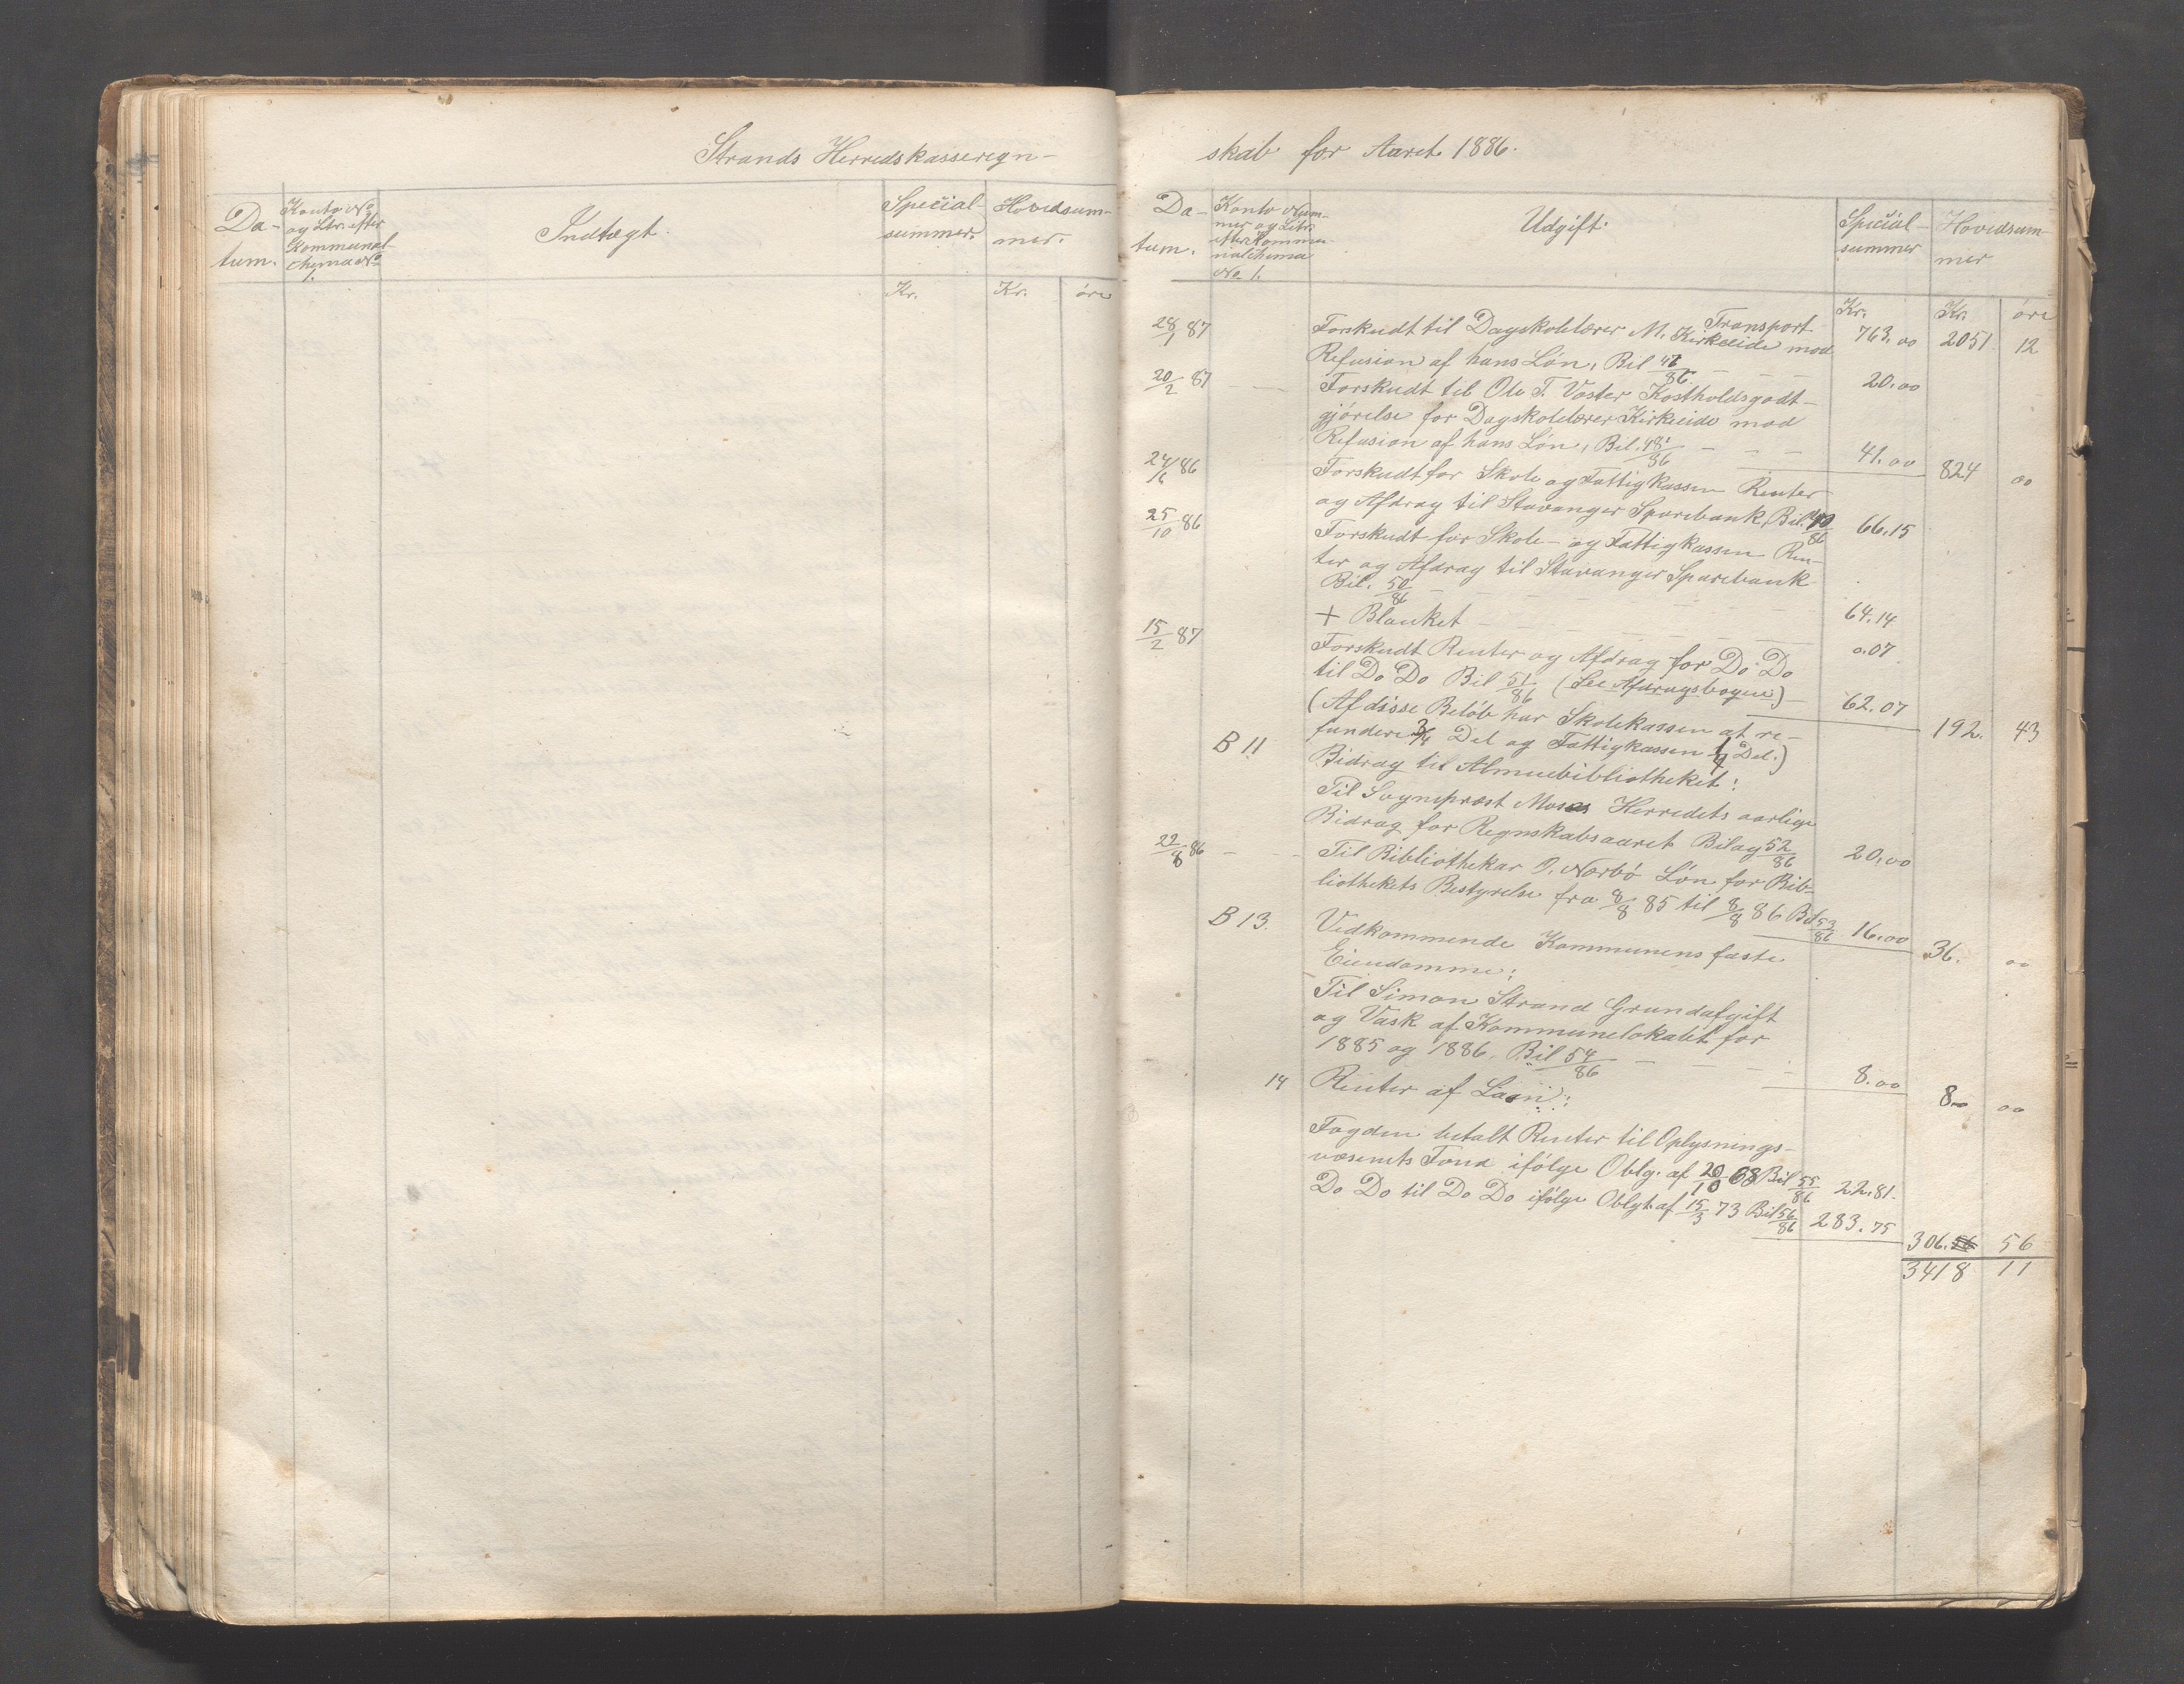 Strands Herredskasseregn-
Da-
tum.
Konto No
og Ltr. efter
Kommunal-
chema No
1.
Indtægt.
Special-
summer.
Hovedsum-
mer.
Kr.
Kr.
öre
skab for Aaret 1886.
Da-
tum.
Konto Num-
mer og Litr.
efter Kommu-
nalchema
No 1.
Udgift.
Special-
summer
Hovedsum-
mer
Kr.
Kr.
öre
Transport 763.00 2051 12
28/1 87 Forskudt til Dagskolelærer M. Kirkeeide mod
Refusion af hans Lön, Bil 46/86. - - - 20.00
20/2 87 - - Forskudt til Ole T. Voster Kostholdsgodt-
gjörelse for Dagskolelærer Kirkeeide mod
Refusion af hans Lön, Bil. 48/86 - - - 41.00 824 00
24/6 86 Forskudt for Skole og Fattigkassen Renter
og Afdrag til Stavanger Sparebank, Bil. 49/86 66.15
25/10 86 Forskudt for Skole- og Fattigkassen Ren-
ter og Afdrag til Stavanger Sparebank
Bil. 50/86 - - - - - - 64.14
+ Blanket - - - - - - 0.07
15/2 87 Forskudt Renter og Afdrag for Do Do
til Do Do Bil 51/86 (See Afdragsbogen) - 62.07 192. 43
(Af disse Belöb har Skolekassen at re-
fundere 3/4 Del og Fattigkassen 1/4 Del.)
B 11. Bidrag til Almuebibliotheket:
Til Sogneprest Moses Herredets aarlige
Bidrag for Regnskabsaaret Bilag 52/86 20,00
22/8 86 - - Til Bibliothekar O. Norbö Lön for Bib-
liothekets Bestyrelse fra 8/8 85 til 8/8 86 Bil 53/86 16.00 36. 00
B 13. Vedkommende Kommunens faste
Eiendomme:
Til Simon Strand Grundafgift
og Vask af Kommunelokalet for
1885 og 1886. Bil 54/86 - - - - 8.00 8 00
14 Renter af Laan:
Fogden betalt Renter til Oplysnings-
væsenets Fond ifölge Oblg. af 20/10 68 Bil 55/86 22.81.
Do Do til Do Do ifölge Oblgt. af 15/3 73 Bil 56/86 283.75
306.56 56
3418 11